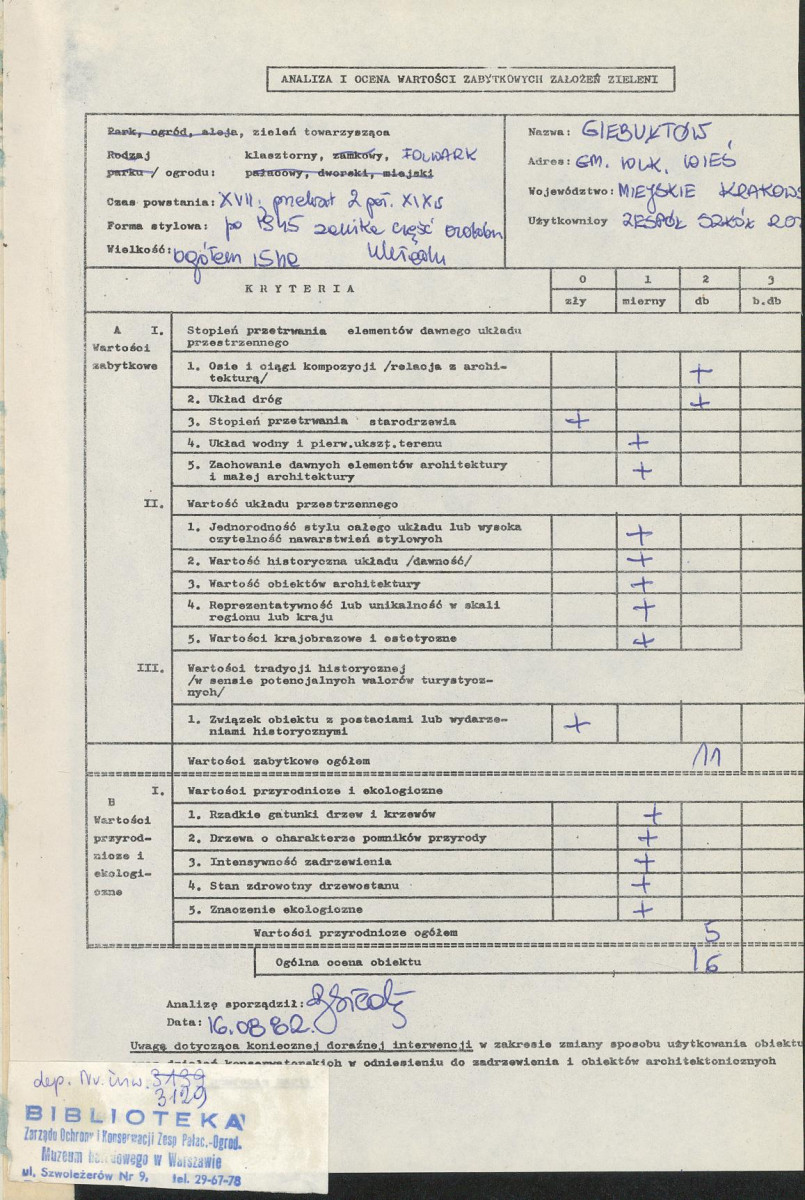 ANALIZA I OCENA WARTOŚCI ZABYTKOWYCH ZAŁOŻEŃ ZIELENI
Park, ogród, aleja, zieleń towarzysząca
Rodzaj klasztorny, zamkowy, FOLWARK
parku / ogrodu: pałacowy, dworski, miejski
Czas powstania: XVII, 2 poł. XIX
Forma stylowa: po 1945 część
Wielkość: ogółem 15 ha
Nazwa: GIEBUŁTÓW
Adres: GM. WLK. WIEŚ
Województwo: MIEJSKIE KRAKOWS
Użytkownicy ZESPÓŁ SZKÓŁ ROL
KRYTERIA
0 1 2 3
zły mierny db b.db
A I. Stopień przetrwania elementów dawnego układu
Wartości przestrzennego
zabytkowe
1. Osie i ciągi kompozycji /relacja z archi-
tekturą/ +
2. Układ dróg +
3. Stopień przetrwania starodrzewia +
4. Układ wodny i pierw.ukszt.terenu +
5. Zachowanie dawnych elementów architektury
i małej architektury +
II. Wartość układu przestrzennego
1. Jednorodność stylu całego układu lub wysoka
czytelność nawarstwień stylowych +
2. Wartość historyczna układu /dawność/ +
3. Wartość obiektów architektury +
4. Reprezentatywność lub unikalność w skali
regionu lub kraju +
5. Wartości krajobrazowe i estetyczne +
III. Wartości tradycji historycznej
/w sensie potencjalnych walorów turystycz-
nych/
1. Związek obiektu z postaciami lub wydarze-
niami historycznymi +
Wartości zabytkowe ogółem 11
I. Wartości przyrodnicze i ekologiczne
B
Wartości
przyrod-
nicze i
ekologi-
czne
1. Rzadkie gatunki drzew i krzewów +
2. Drzewa o charakterze pomników przyrody +
3. Intensywność zadrzewienia +
4. Stan zdrowotny drzewostanu +
5. Znaczenie ekologiczne +
Wartości przyrodnicze ogółem 5
Ogólna ocena obiektu 16
Analizę sporządził:
Data: 16.08.82.
Uwagę dotycząca koniecznej doraźnej interwencji w zakresie zmiany sposobu użytkowania obiektu
oraz działań konserwatorskich w odniesieniu do zadrzewienia i obiektów architektonicznych
dep. Nr. inw. 3139
3129
BIBLIOTEKA
Zarządu Ochrony i Konserwacji Zesp Pałac.-Ogrod.
Muzeum Narodowego w Warszawie
ul. Szwoleżerów Nr 9, tel. 29-67-78